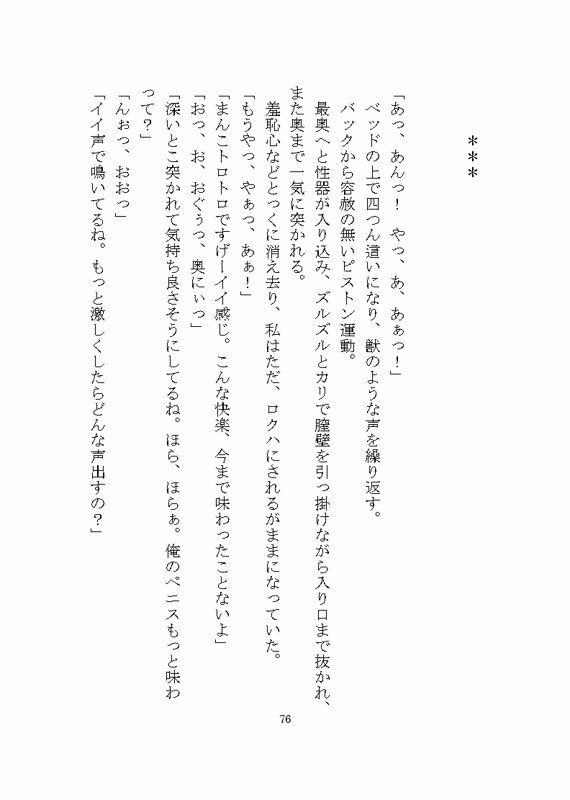 ***
「あっ、あんっ！　やっ、あ、あぁっ！」
ベッドの上で四つん這いになり、獣のような声を繰り返す。
バックから容赦の無いピストン運動。
最奥へと性器が入り込み、ズルズルとカリで膣壁を引っ掛けながら入り口まで抜かれ、
また奥まで一気に突かれる。
羞恥心などとっくに消え去り、私はただ、ロクハにされるがままになっていた。
「もうやっ、やぁっ、あぁ！」
「まんこトロトロですげーイイ感じ。こんな快楽、今まで味わったことないよ」
「おっ、お、おぐぅっ、奥にぃっ」
「深いとこ突かれて気持ち良さそうにしてるね。ほら、ほらぁ。俺のペニスもっと味わ
って？」
「んぉっ、おおっ」
「イイ声で鳴いてるね。もっと激しくしたらどんな声出すの？」
76